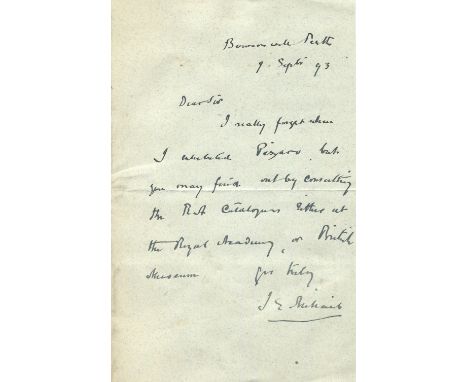 Bowerswell Perth
9 Septr 93
Dear Sir
I really forget when
I exhibited Pizarro but
you may find out by consulting
the R.A Catalogues either at
the Royal Academy, or British
Museum yrs truly
J E Millais